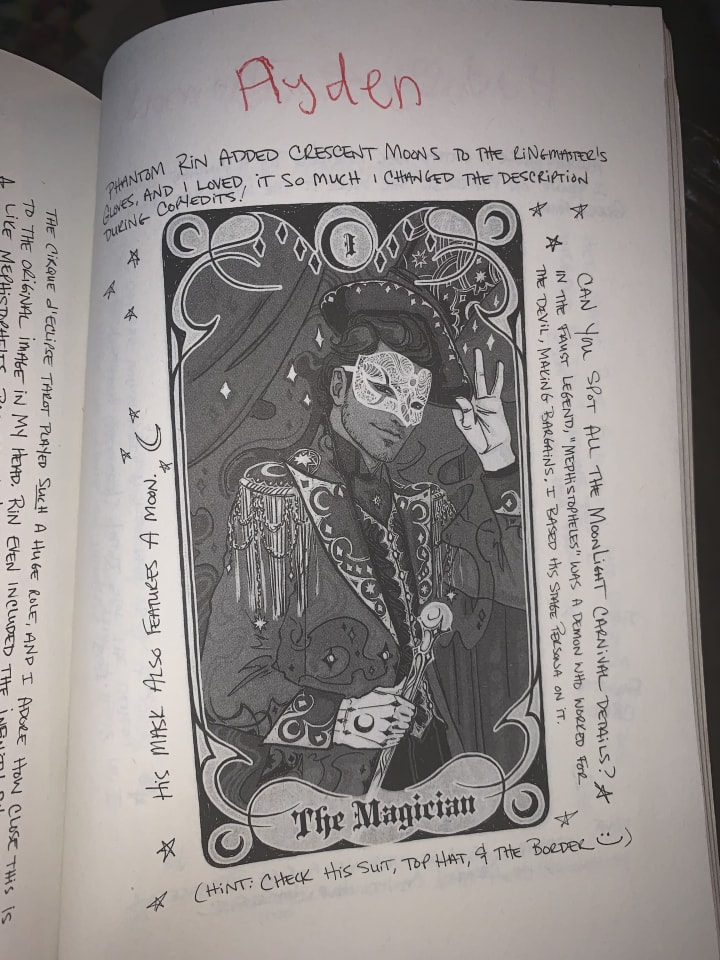 Ayden
PHANTOM RIN ADDED CRESCENT MOONS TO THE RINGMASTER'S
GLOVES, AND I LOVED IT SO MUCH I CHANGED THE DESCRIPTION
DURING COPYEDITS!
I
CAN YOU SPOT ALL THE MOONLIGHT CARNIVAL DETAILS?
IN THE FAUST LEGEND, "MEPHISTOPHELES" WAS A DEMON WHO WORKED FOR
THE DEVIL, MAKING BARGAINS. I BASED HIS STAGE PERSONA ON IT.
HIS MASK ALSO FEATURES A MOON
The Magician
(HINT: CHECK HIS SUIT, TOP HAT, & THE BORDER :))
THE CIRQUE D'ECLIPSE TAROT PLAYED SUCH A HUGE ROLE, AND I ADORE HOW CLOSE THIS IS
TO THE ORIGINAL IMAGE IN MY HEAD. RIN EVEN INCLUDED THE
LIKE MEPHISTOPHELES